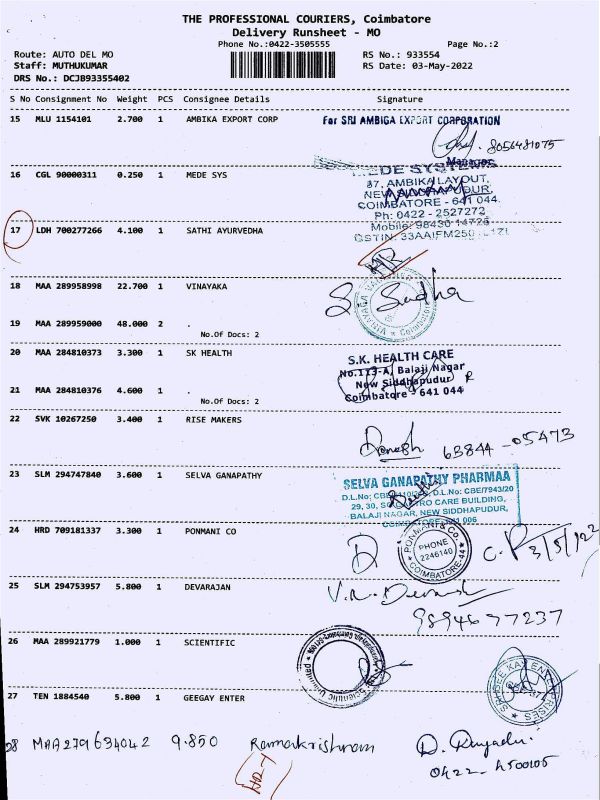 THE PROFESSIONAL COURIERS, Coimbatore
Delivery Runsheet - MO
Phone No.:0422-3505555
Page No.:2
Route: AUTO DEL MO
RS No.: 933554
Staff: MUTHUKUMAR
RS Date: 03-May-2022
DRS No.: DCJB93355402
S No Consignment No Weight PCS Consignee Details Signature
15 MLU 1154101 2.700 1 AMBIKA EXPORT CORP
For SRI AMBIGA EXPORT CORPORATION
8056481075
Manager
16 CGL 90000311 0.250 1 MEDE SYS
MEDE SYSTEMS
87, AMBIKA LAYOUT,
COIMBATORE - 641 044.
Ph: 0422 - 2527272
Mobile: 98430 14726
17 LDH 700277266 4.100 1 SATHI AYURVEDHA
18 MAA 289958998 22.700 1 VINAYAKA
S. Sudha
19 MAA 289959000 48.000 2 .
No.Of Docs: 2
20 MAA 284810373 3.300 1 SK HEALTH
S.K. HEALTH CARE
No.113-A, Balaji Nagar
New Siddhapudur
Coimbatore - 641 044
21 MAA 284810376 4.600 1 .
No.Of Docs: 2
22 SVK 10267250 3.400 1 RISE MAKERS
63844-05473
23 SLM 294747840 3.600 1 SELVA GANAPATHY
SELVA GANAPATHY PHARMAA
BALAJI NAGAR, NEW SIDDHAPUDUR,
24 HRD 709181337 3.300 1 PONMANI CO
PONMANI & CO.
PHONE
2246140
COIMBATORE-44
3/5/22
25 SLM 294753957 5.800 1 DEVARAJAN
9894677237
26 MAA 289921779 1.000 1 SCIENTIFIC
27 TEN 1884540 5.800 1 GEEGAY ENTER
28 MAA 279634042 9.850 Ramakrishnan
0422-4500105